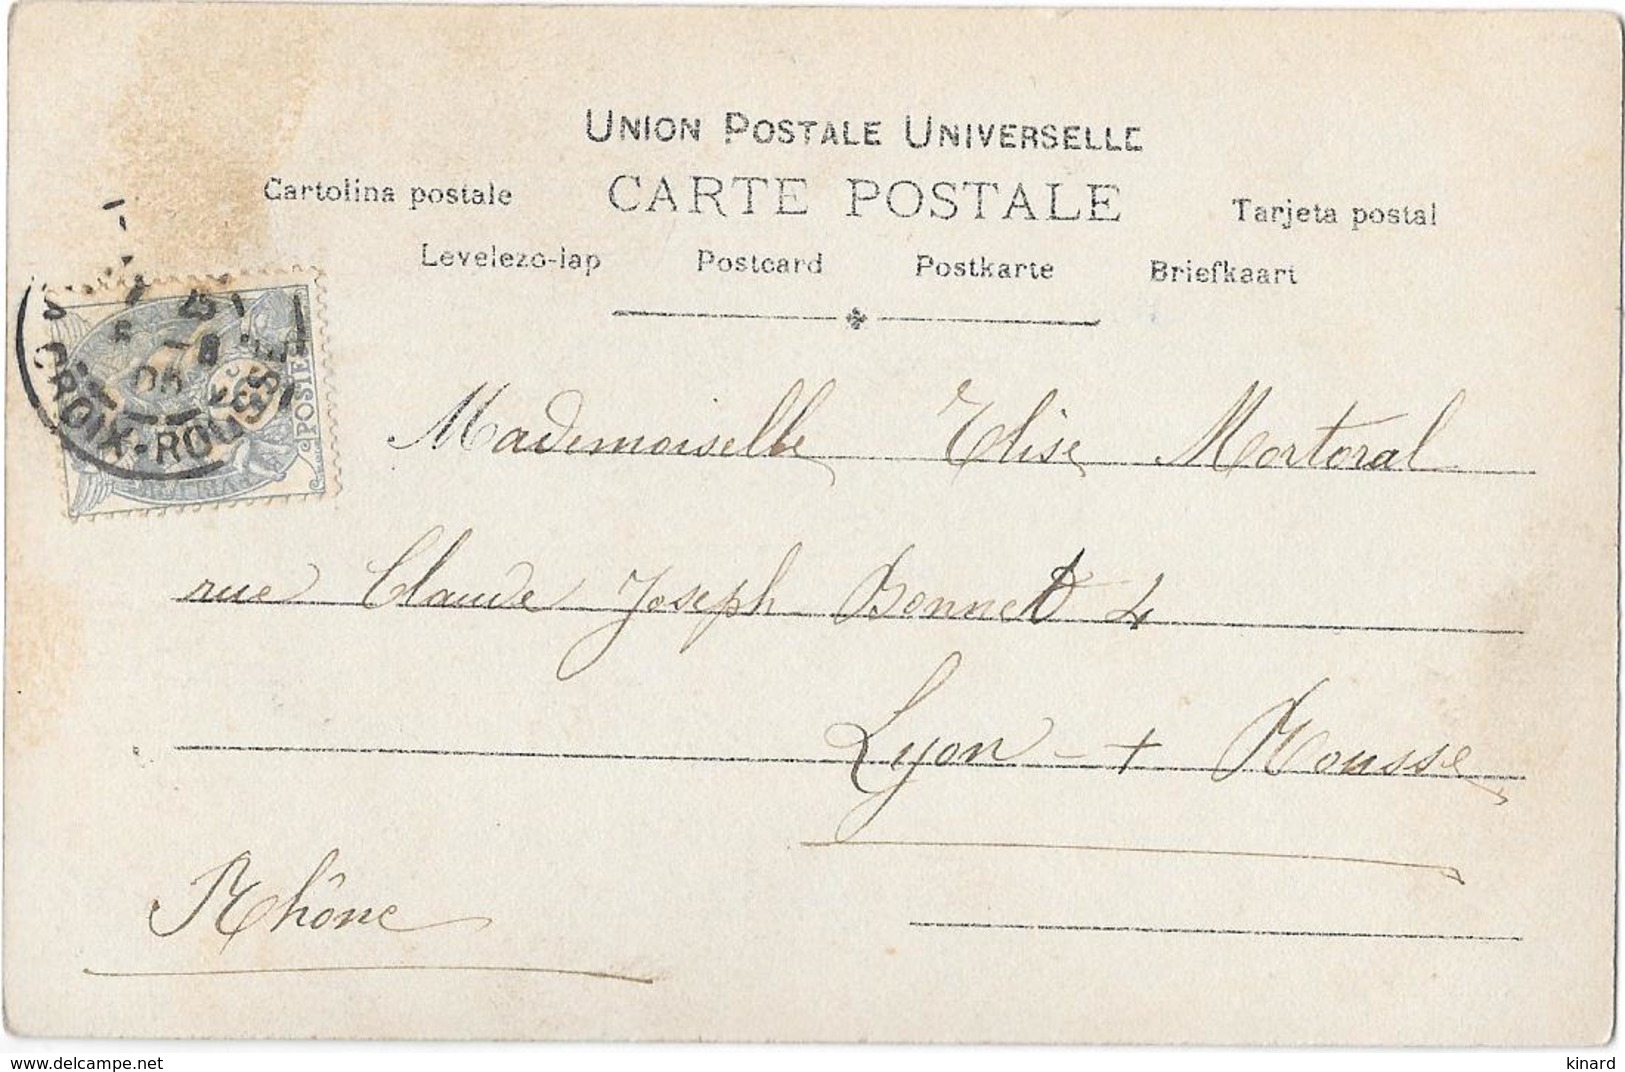 UNION POSTALE UNIVERSELLE
CARTE POSTALE
Cartolina postale
Tarjeta postal
Levelezo-lap Postcard Postkarte Briefkaart
CROIX-ROUSSE
POSTE
Mademoiselle Elise Mortoral
rue Claude Joseph Bonnet 4
Lyon - + Rousse
Rhône
kinard